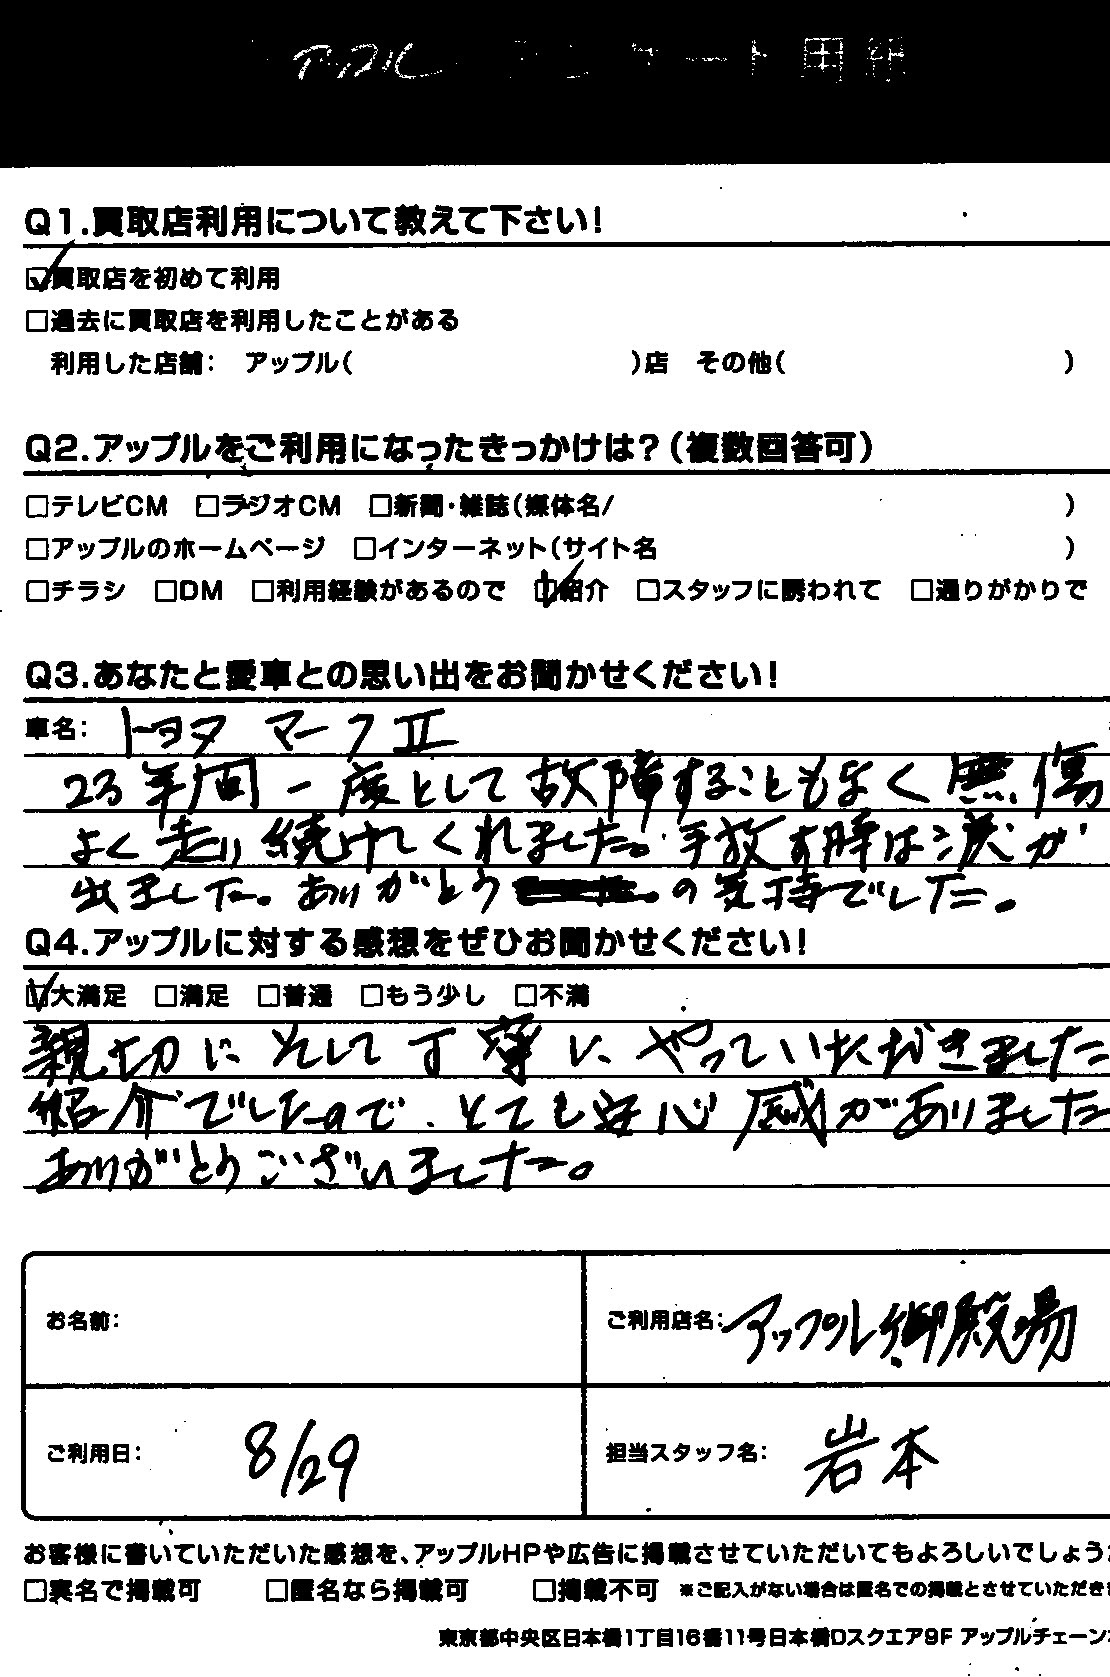 アップル アンケート用紙
Q1.買取店利用について教えて下さい!
☑買取店を初めて利用
□過去に買取店を利用したことがある
利用した店舗: アップル( )店 その他( )
Q2.アップルをご利用になったきっかけは?(複数回答可)
□テレビCM □ラジオCM □新聞・雑誌(媒体名/ )
□アップルのホームページ □インターネット(サイト名 )
□チラシ □DM □利用経験があるので ☑紹介 □スタッフに誘われて □通りがかりで
Q3.あなたと愛車との思い出をお聞かせください!
車名: トヨタ マークII
23年間一度として故障することもなく無傷
よく走り続けてくれました。手放す時は涙が
出ました。ありがとうの気持でした。
Q4.アップルに対する感想をぜひお聞かせください!
☑大満足 □満足 □普通 □もう少し □不満
親切にそして丁寧に やっていただきました
紹介でしたので、とても安心感がありました
ありがとうございました。
お名前:
ご利用店名: アップル御殿場
ご利用日: 8/29
担当スタッフ名: 岩本
お客様に書いていただいた感想を、アップルHPや広告に掲載させていただいてもよろしいでしょう
□実名で掲載可 □匿名なら掲載可 □掲載不可 ※ご記入がない場合は匿名での掲載とさせていただき
東京都中央区日本橋1丁目16番11号日本橋Dスクエア9F アップルチェーン